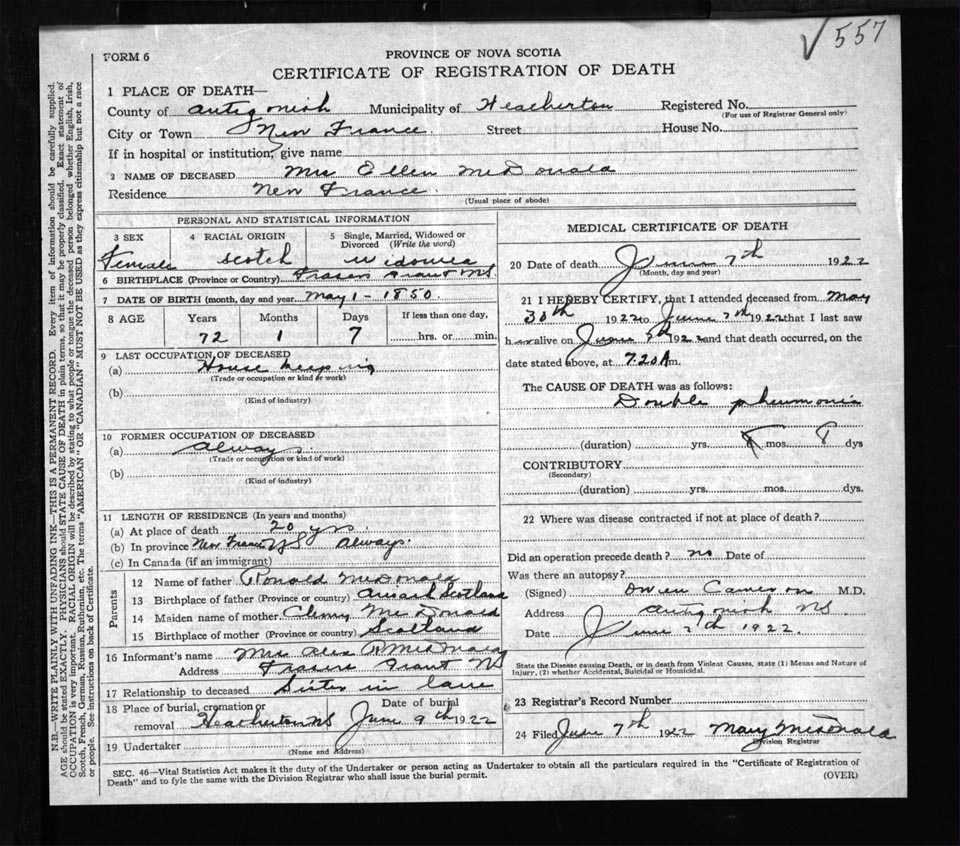 ✓ 557
FORM 6
PROVINCE OF NOVA SCOTIA
CERTIFICATE OF REGISTRATION OF DEATH
1 PLACE OF DEATH—
County of Antigonish Municipality of Heatherton Registered No.
(For use of Registrar General only)
City or Town New France Street House No.
If in hospital or institution, give name
2 NAME OF DECEASED Mrs Ellen McDonald
Residence New France.
(Usual place of abode)
PERSONAL AND STATISTICAL INFORMATION
3 SEX 4 RACIAL ORIGIN 5 Single, Married, Widowed or Divorced (Write the word)
Female Scotch Widowed
6 BIRTHPLACE (Province or Country) Frasers Grant NS
7 DATE OF BIRTH (month, day and year May 1 - 1850.
8 AGE Years Months Days If less than one day,
72 1 7 hrs. or min.
9 LAST OCCUPATION OF DECEASED
(a) House keeping
(Trade or occupation or kind of work)
(b)
(Kind of industry)
10 FORMER OCCUPATION OF DECEASED
(a) Always
(Trade or occupation or kind of work)
(b)
(Kind of industry)
11 LENGTH OF RESIDENCE (In years and months)
(a) At place of death 20 yrs.
(b) In province New France NS Always.
(c) In Canada (if an immigrant)
Parents
12 Name of father Ronald McDonald
13 Birthplace of father (Province or country) Scotland
14 Maiden name of mother McDonald
15 Birthplace of mother (Province or country) Scotland
16 Informant's name Mrs Alex McDonald
Address Frasers Grant NS
17 Relationship to deceased Sister in law
18 Place of burial, cremation or removal Heatherton NS Date of burial June 9th 1922
19 Undertaker
(Name and Address)
MEDICAL CERTIFICATE OF DEATH
20 Date of death June 7th 1922
(Month, day and year)
21 I HEREBY CERTIFY, that I attended deceased from May
30th 1922 to June 7th 1922 that I last saw
h alive on June 7th 1922 and that death occurred, on the
date stated above, at 7.20 A m.
The CAUSE OF DEATH was as follows:
Double pneumonia
(duration) yrs. mos. 8 dys
CONTRIBUTORY
(Secondary)
(duration) yrs. mos. dys.
22 Where was disease contracted if not at place of death?
Did an operation precede death? no Date of
Was there an autopsy?
(Signed) Owen Cameron M.D.
Address Antigonish NS
Date June 7th 1922.
State the Disease causing Death, or in death from Violent Causes, state (1) Means and Nature of
Injury, (2) whether Accidental, Suicidal or Homicidal.
23 Registrar's Record Number
24 Filed June 7th 1922 Mary McDonald
Division Registrar
SEC. 46—Vital Statistics Act makes it the duty of the Undertaker or person acting as Undertaker to obtain all the particulars required in the "Certificate of Registration of
Death" and to fyle the same with the Division Registrar who shall issue the burial permit.
(OVER)
N.B—WRITE PLAINLY WITH UNFADING INK—THIS IS A PERMANENT RECORD. Every item of information should be carefully supplied.
AGE should be stated EXACTLY. PHYSICIANS should STATE CAUSE OF DEATH in plain terms, so that it may be properly classified. Exact statement of
OCCUPATION is very important. RACIAL ORIGIN will be described by stating to what people or tongue the deceased person belonged whether English, Irish,
Scotch, French, German, Russian, Ruthenian, etc. The terms "AMERICAN" OR "CANADIAN" MUST NOT BE USED as they express citizenship but not a race
or people. See instructions on back of Certificate.